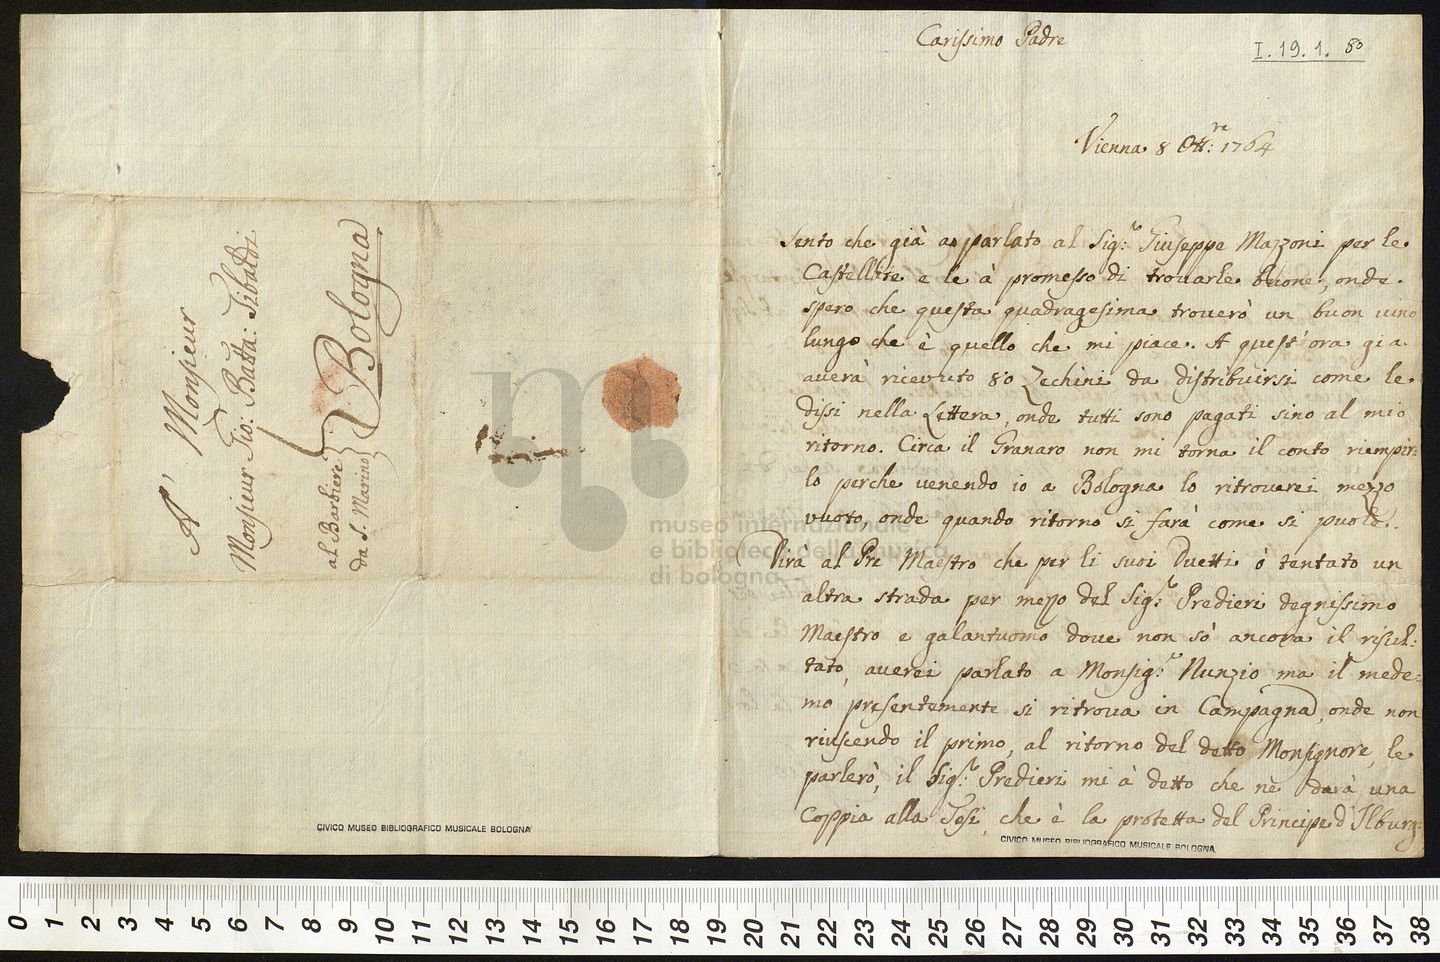 A' Monsieur
Monsieur Gio: Batta: Tibaldi
al Barbiere
da S. Marino
Bologna
CIVICO MUSEO BIBLIOGRAFICO MUSICALE BOLOGNA
museo internazionale
e biblioteca della musica
di bologna
Carissimo Padre
I. 19. 1. 80
Vienna 8 Ott:re 1764
Sento che già a parlato al Sig:r Giuseppe Mazzoni per le
Castellate e le à promesso di trovarle buone, onde
spero che questa quadragesima troverò un buon vino
lungo che è quello che mi piace. A quest'ora già
averà ricevuto 80 Zechini da distribuirsi come le
dissi nella Lettera, onde tutti sono pagati sino al mio
ritorno. Circa il Granaro non mi torna il conto riempir:
lo perche venendo io a Bologna lo ritroverei mezzo
vuoto, onde quando ritorno si farà come si puole.
Dirà al Pre Maestro che per li suoi Duetti ó tentato un
altra strada per mezzo del Sig:r Predieri degnissimo
Maestro e galantuomo dove non sò ancora il risul:
tato, averei parlato a Monsig:r Nunzio ma il mede:
mo presentemente si ritrova in Campagna, onde non
riuscendo il primo, al ritorno del detto Monsignore, le
parlerò, il Sig:r Predieri mi à detto che ne darà una
Coppia alla Tesi, che è la protetta del Principe d'Ilburg:
CIVICO MUSEO BIBLIOGRAFICO MUSICALE BOLOGNA
0 1 2 3 4 5 6 7 8 9 10 11 12 13 14 15 16 17 18 19 20 21 22 23 24 25 26 27 28 29 30 31 32 33 34 35 36 37 38